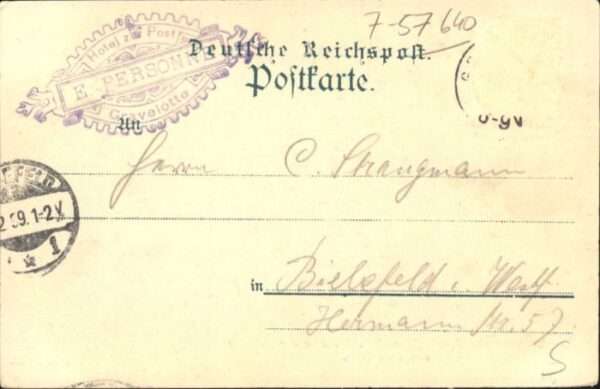 7-57640
Hotel z. Post
E. PERSONNE
Gravelotte
Deutsche Reichspost.
Postkarte.
An
Herrn C. Strangmann
9. 1-2 N
1
in Bielefeld i. Westf
Hermann Str. 57
S